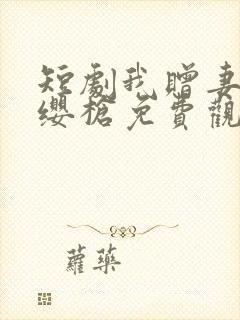 短劇我贈妻
纓槍免費觀
蘿藥